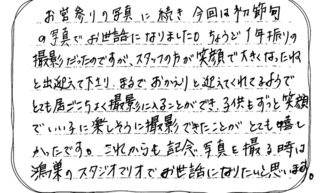 お宮参りの写真に続き今回は初節句
の写真でお世話になりました。ちょうど1年振りの
撮影だったのですが、スタッフの方が笑顔で大きくなったね
と出迎えて下さり、まるでおかえりと迎えてくれてるようで
とても居ごこちよく撮影に入ることができ、子供もずっと笑顔
でいい子に楽しそうに撮影できたことがとても嬉し
かったです。これからも記念写真を撮る時は
鴻巣のスタジオマリオでお世話になりたいと思います。